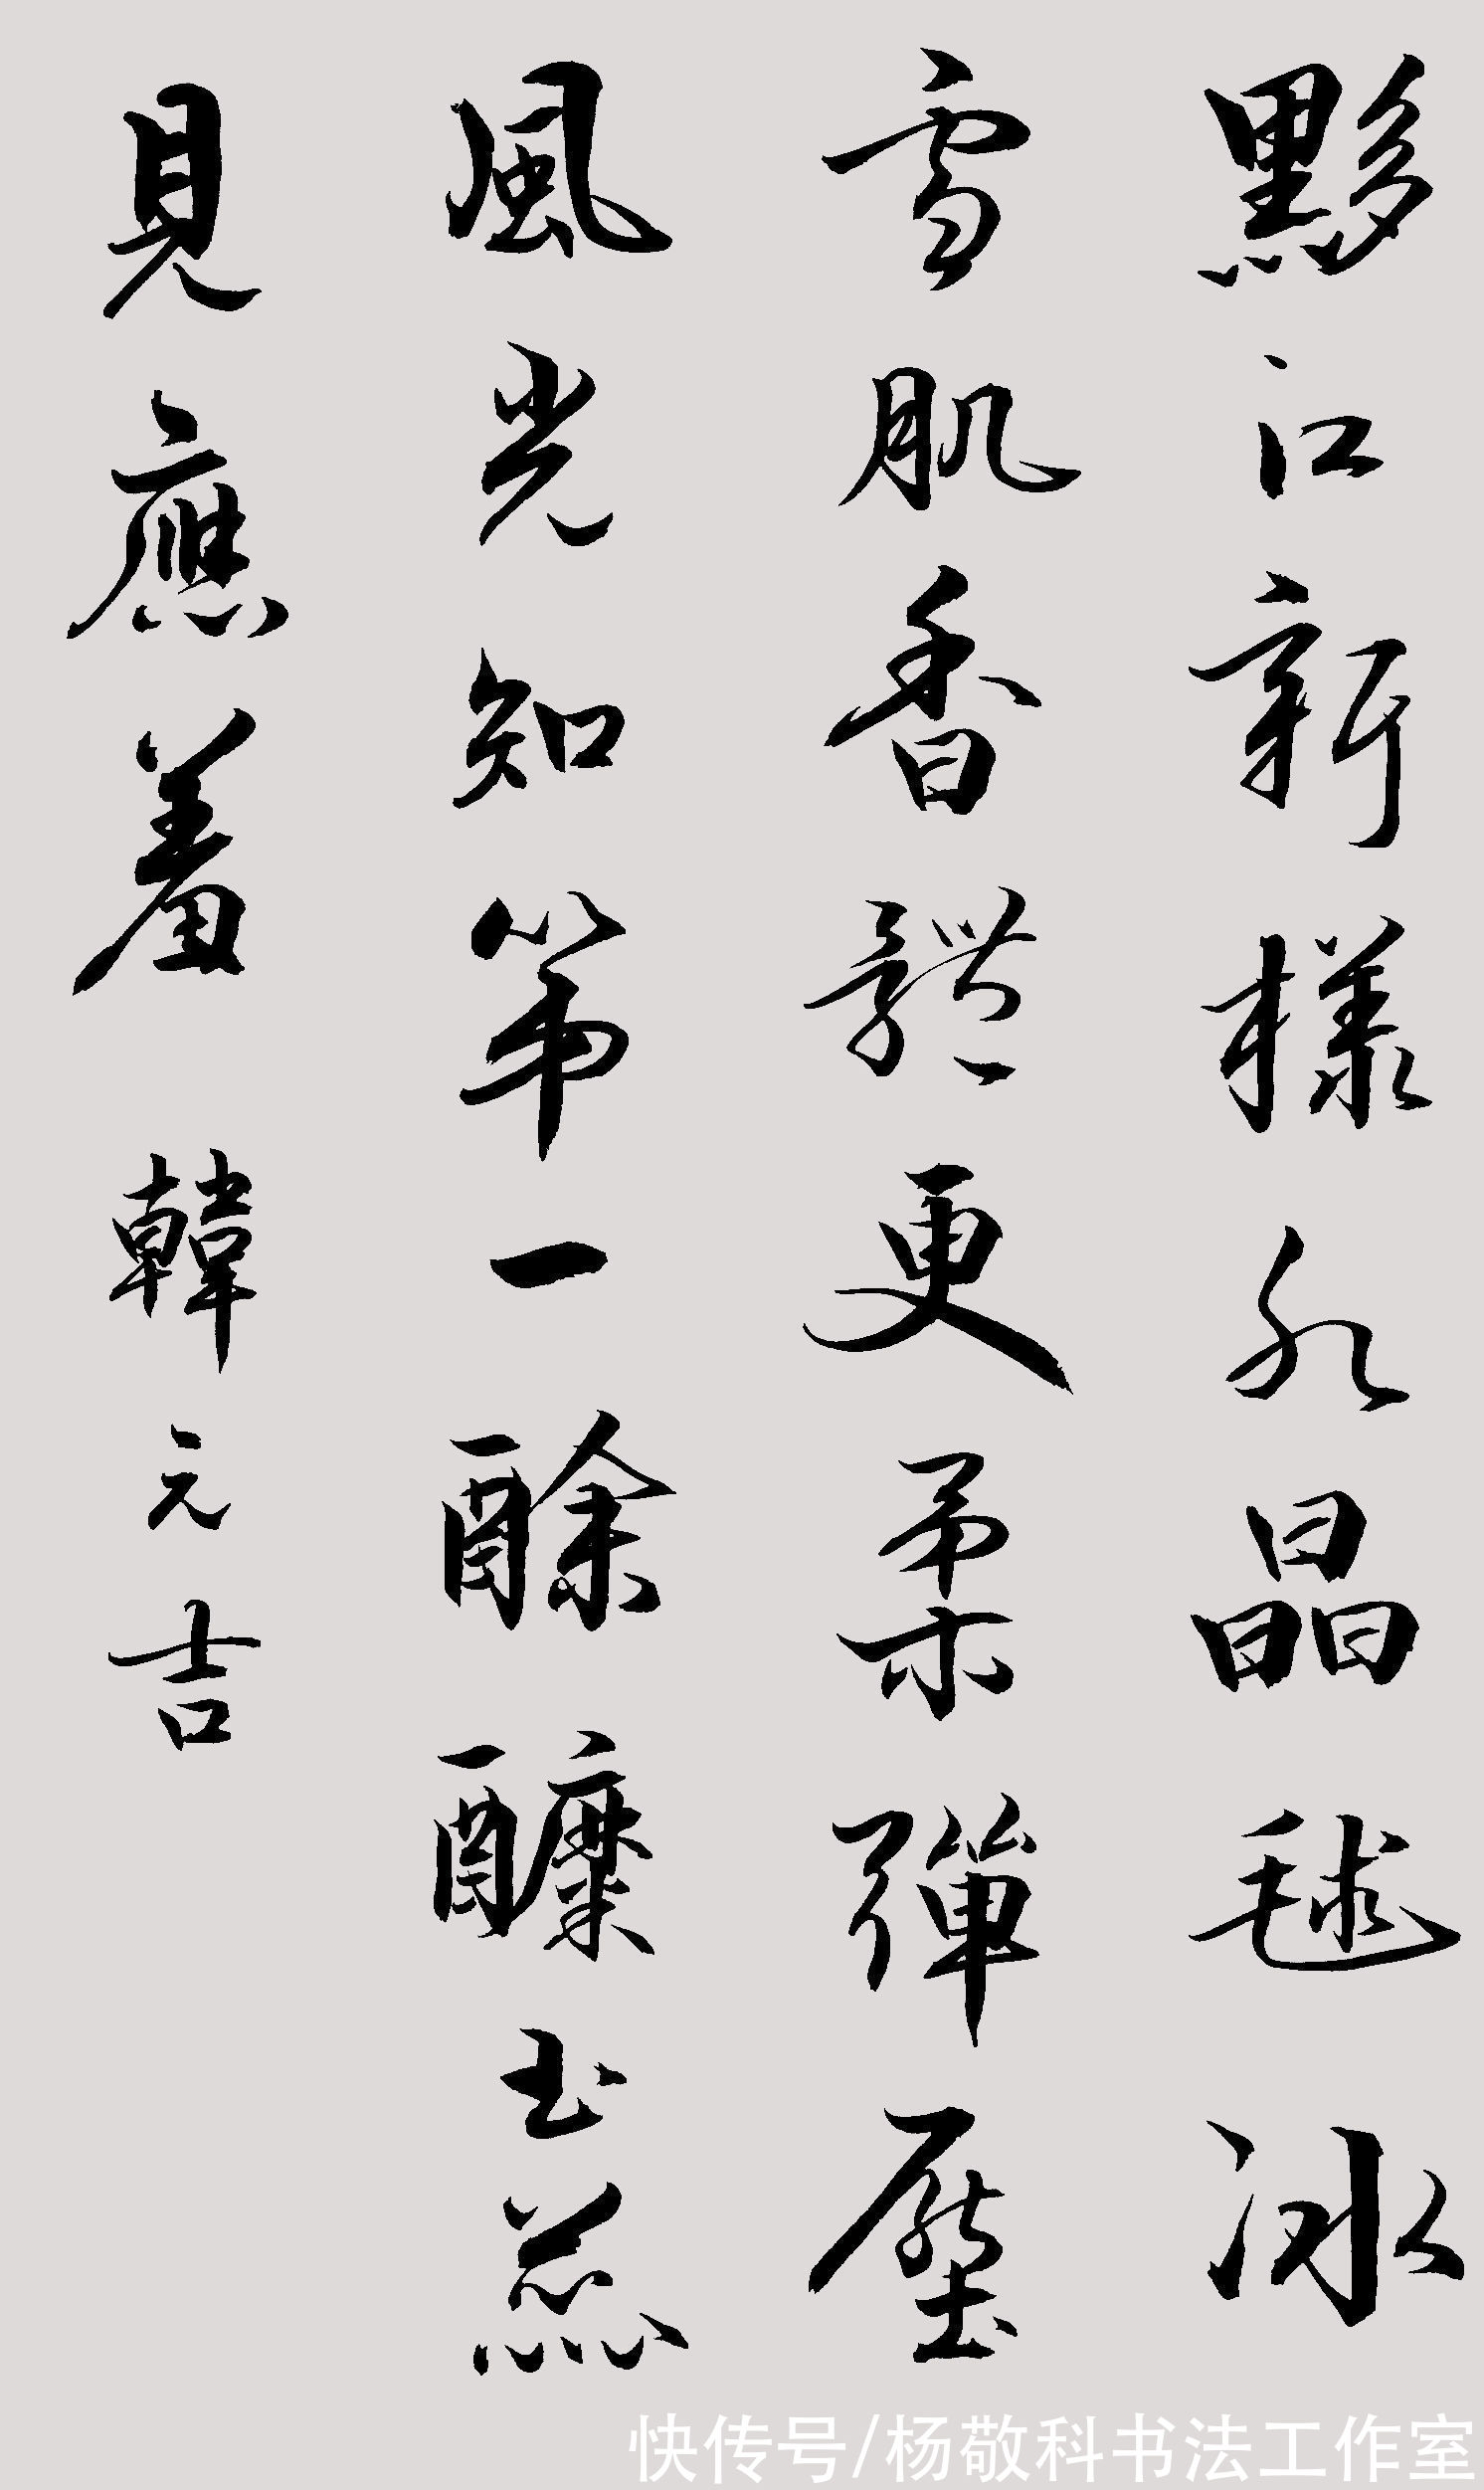 黟江新樣水晶毬冰
雪肌香體更柔彈壓
風光知第一酴醾玉蕊
見應羞 韓元吉
快传号/杨敬科书法工作室